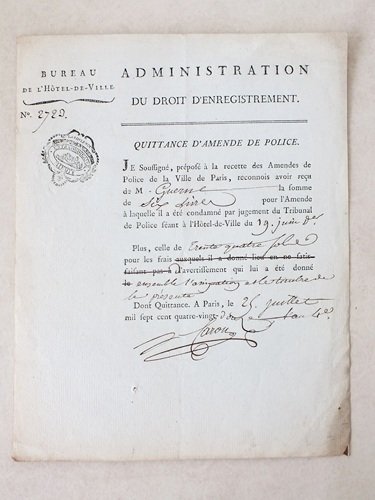 BUREAU
DE L'HÔTEL-DE-VILLE
N°. 2729.
ADMINISTRATION
DU DROIT D'ENREGISTREMENT.
QUITTANCE D'AMENDE DE POLICE.
JE Soussigné, préposé à la recette des Amendes de
Police de la Ville de Paris, reconnois avoir reçu
de M. la somme
de Six livres pour l'Amende
à laquelle il a été condamné par jugement du Tribunal
de Police séant à l'Hôtel-de-Ville du 19 juin
Plus, celle de trente quatre sols
pour les frais auxquels il a donné lieu en ne satis-
faisant pas à l'avertissement qui lui a été donné
ensemble et le timbre de
la présente
Dont Quittance. A Paris, le 25 juillet
mil sept cent quatre-vingt-douze l'an 4e
Caron